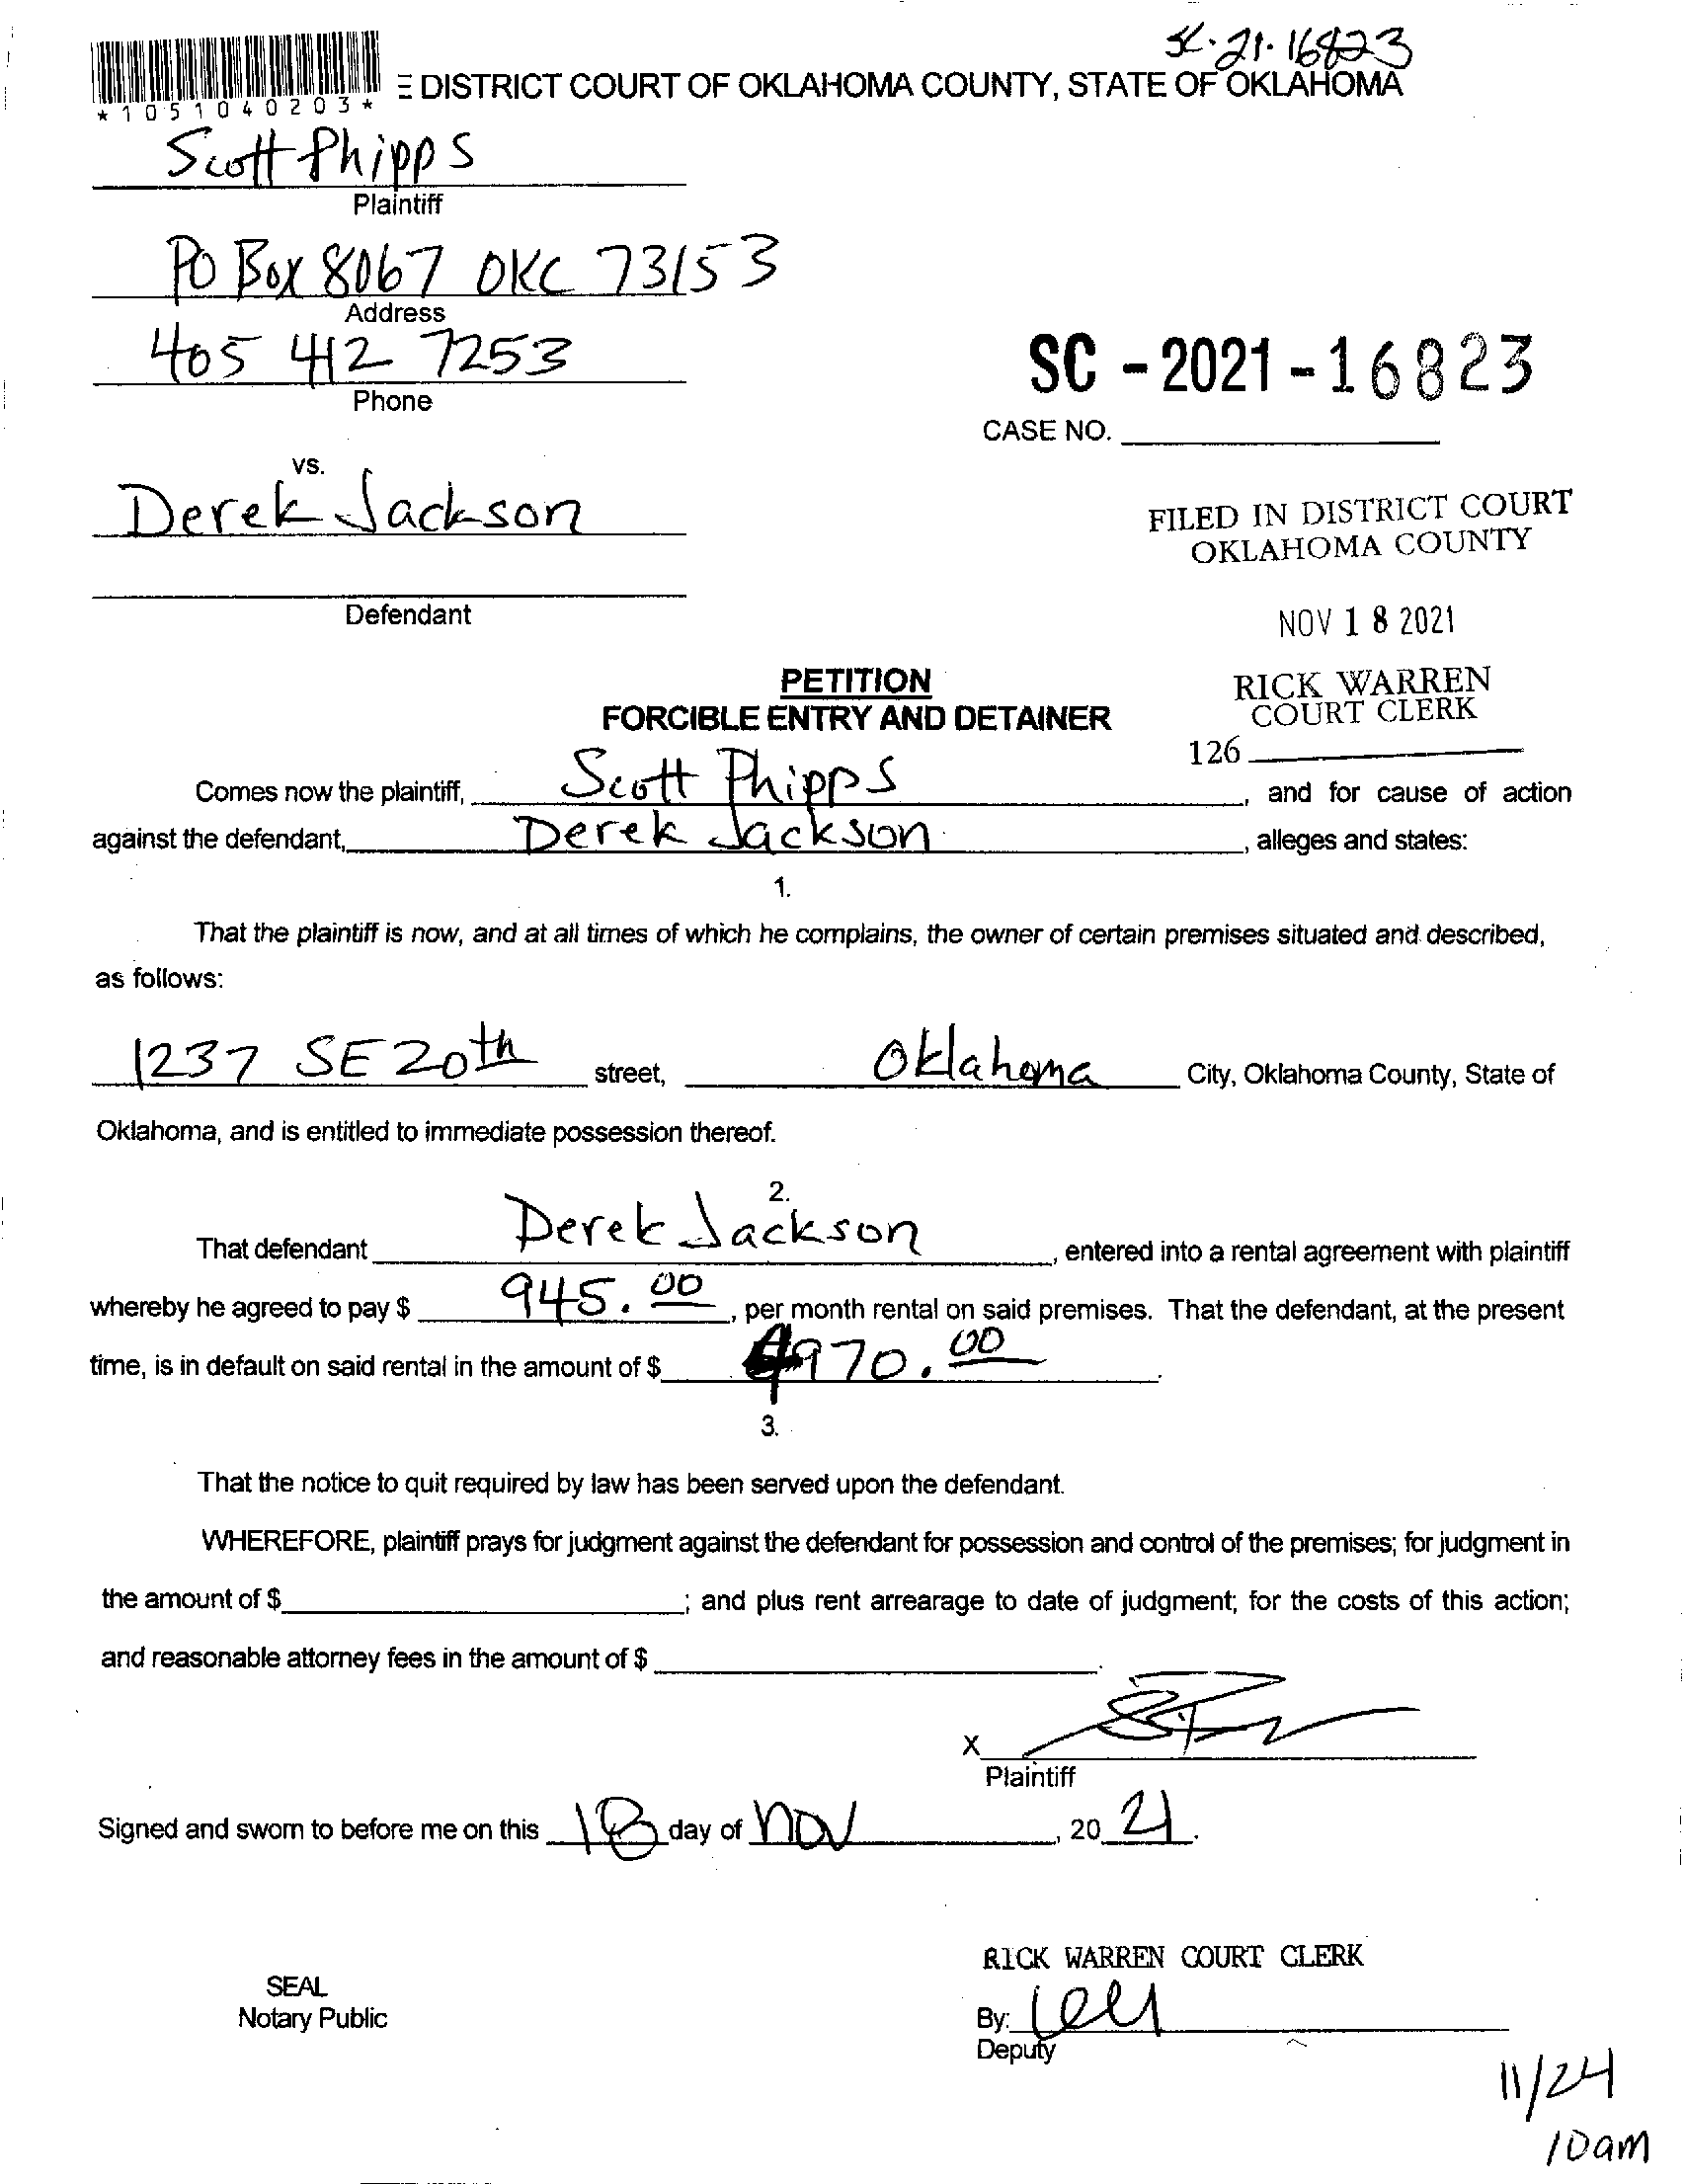 SC-21-16823
E DISTRICT COURT OF OKLAHOMA COUNTY, STATE OF OKLAHOMA
*1051040203*
Scott Phipps
Plaintiff
PO Box 8067 OKC 73153
Address
405 412 7253
Phone
SC - 2021 - 16823
CASE NO.
vs.
Derek Jackson
FILED IN DISTRICT COURT
OKLAHOMA COUNTY
Defendant
NOV 18 2021
PETITION
FORCIBLE ENTRY AND DETAINER
RICK WARREN
COURT CLERK
126
Comes now the plaintiff, Scott Phipps, and for cause of action
against the defendant, Derek Jackson, alleges and states:
1.
That the plaintiff is now, and at all times of which he complains, the owner of certain premises situated and described,
as follows:
1237 SE 20th street, Oklahoma City, Oklahoma County, State of
Oklahoma, and is entitled to immediate possession thereof.
2.
That defendant Derek Jackson, entered into a rental agreement with plaintiff
whereby he agreed to pay $ 945.00, per month rental on said premises. That the defendant, at the present
time, is in default on said rental in the amount of $ 4970.00.
3.
That the notice to quit required by law has been served upon the defendant.
WHEREFORE, plaintiff prays for judgment against the defendant for possession and control of the premises; for judgment in
the amount of $ ; and plus rent arrearage to date of judgment; for the costs of this action;
and reasonable attorney fees in the amount of $ .
X
Plaintiff
Signed and sworn to before me on this 18 day of Nov, 20 21.
RICK WARREN COURT CLERK
SEAL
Notary Public
By:
Deputy
11/24
10am